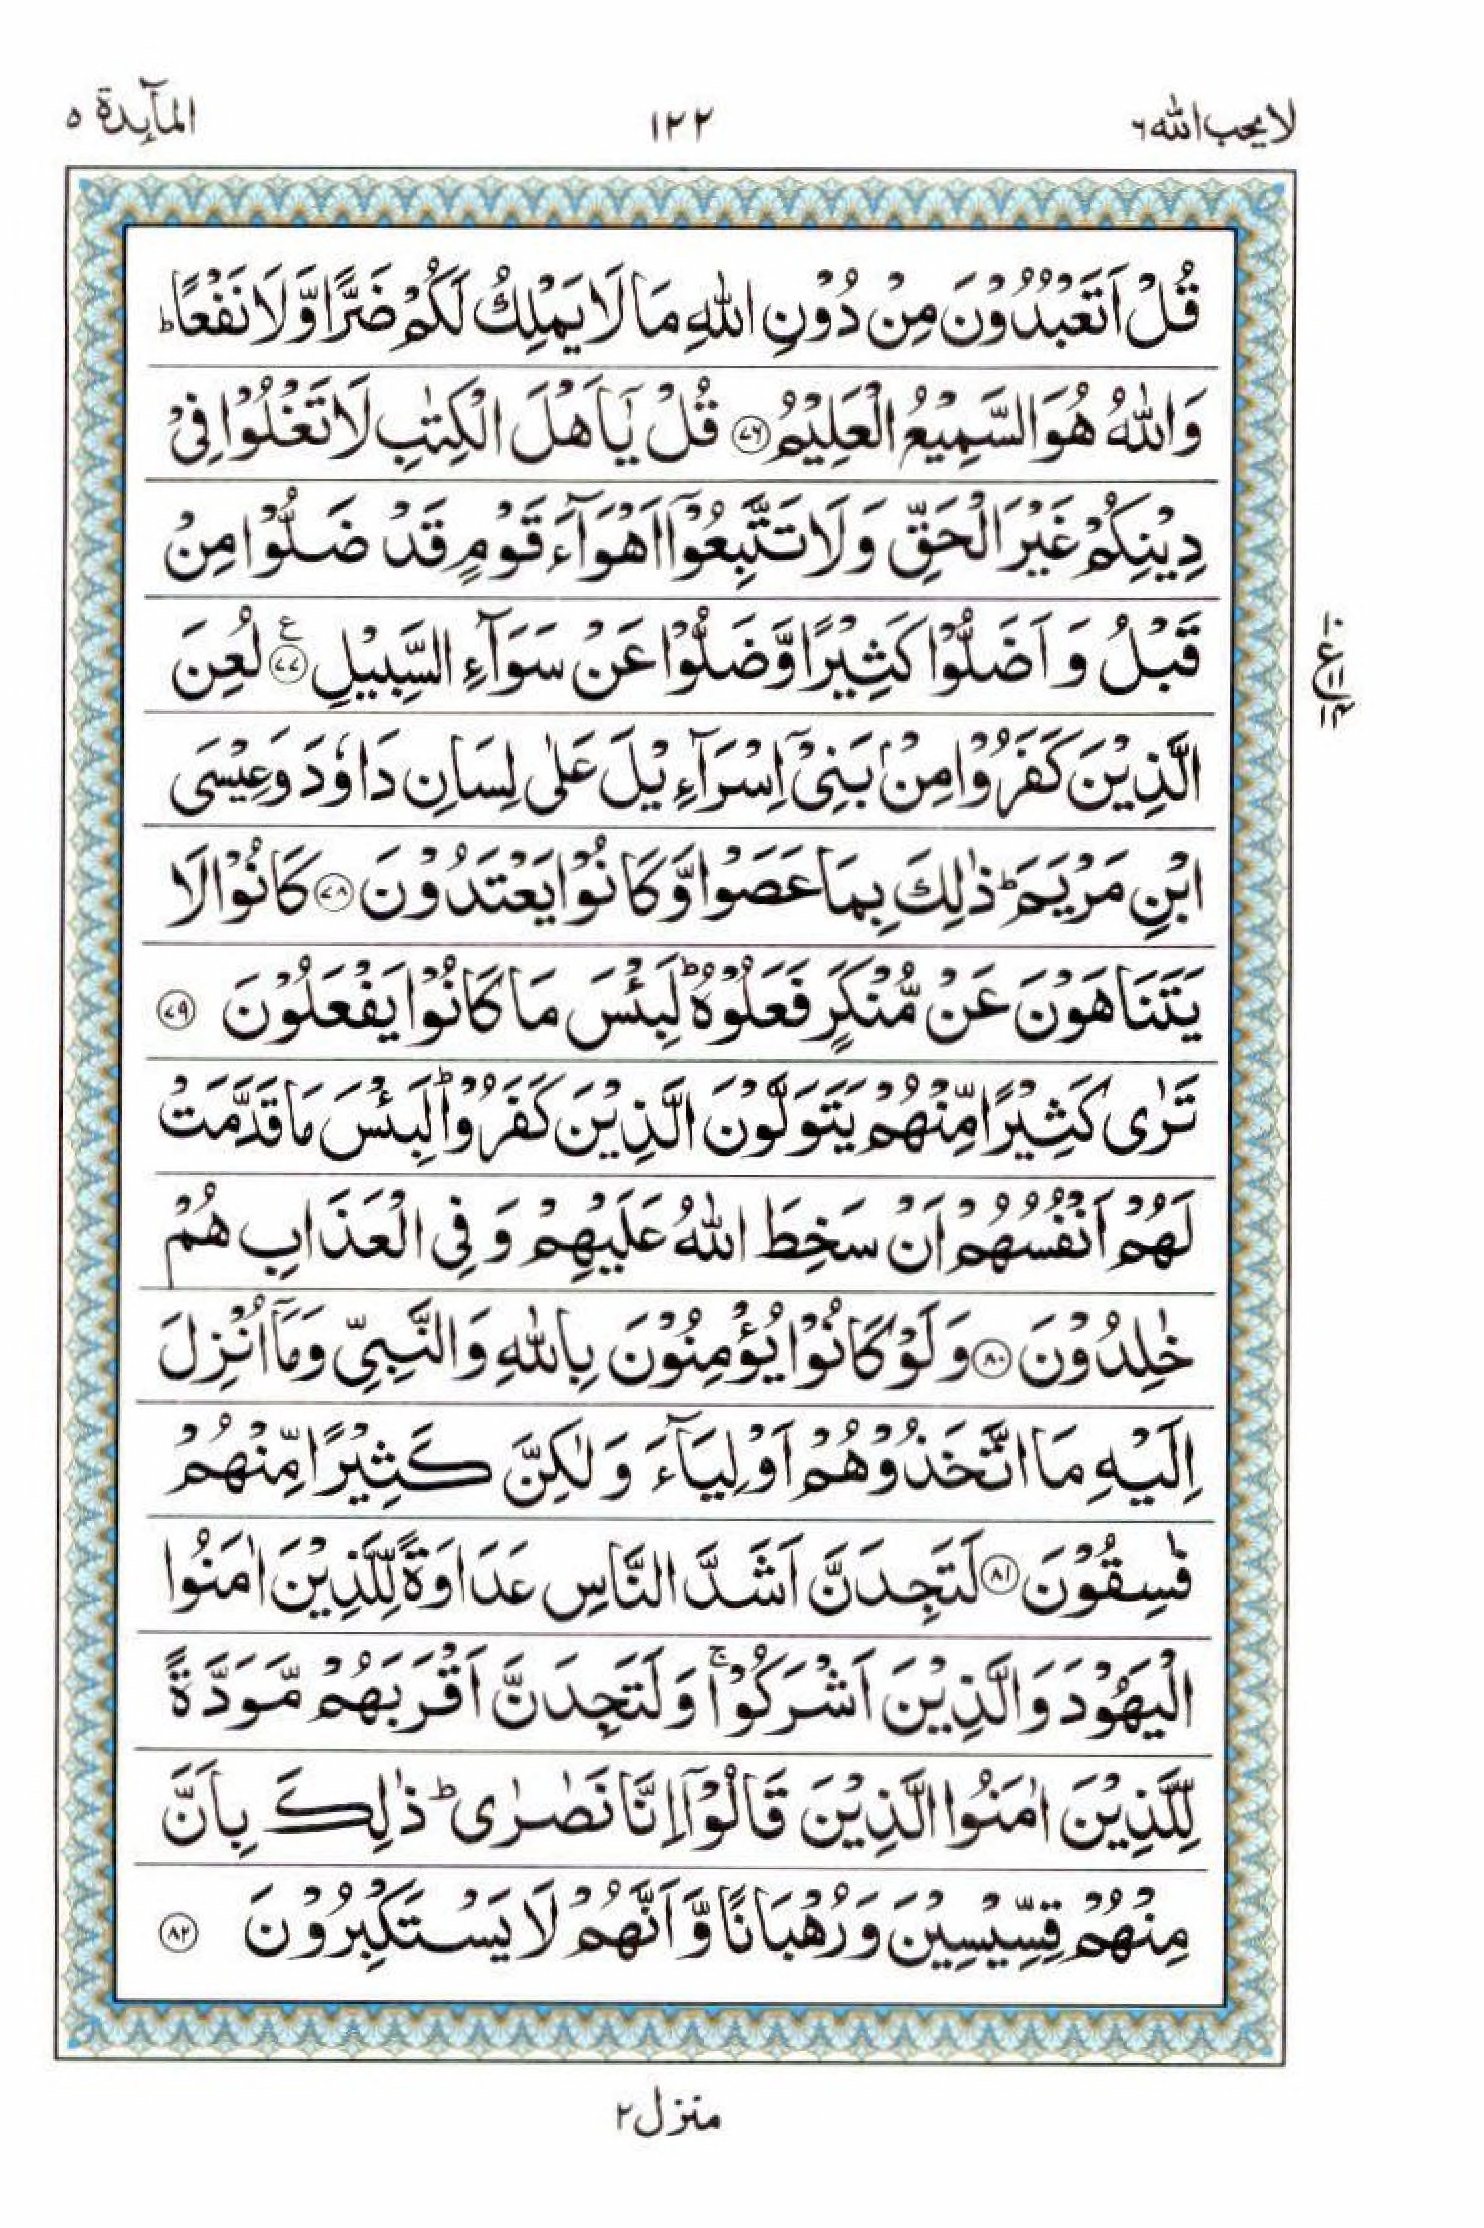 لا يحب الله ٦
١٢٢
المآئدة ٥
قُلْ اَتَعْبُدُوْنَ مِنْ دُوْنِ اللّٰهِ مَا لَا يَمْلِكُ لَكُمْ ضَرًّا وَّلَا نَفْعًا ؕ
وَاللّٰهُ هُوَ السَّمِيْعُ الْعَلِيْمُ ﴿۷۶﴾ قُلْ يٰۤاَهْلَ الْكِتٰبِ لَا تَغْلُوْا فِىْ
دِيْنِكُمْ غَيْرَ الْحَقِّ وَلَا تَتَّبِعُوْۤا اَهْوَآءَ قَوْمٍ قَدْ ضَلُّوْا مِنْ
قَبْلُ وَ اَضَلُّوْا كَثِيْرًا وَّضَلُّوْا عَنْ سَوَآءِ السَّبِيْلِ ﴿۷۷﴾ ع لُعِنَ
الَّذِيْنَ كَفَرُوْا مِنْۢ بَنِىْۤ اِسْرَآءِيْلَ عَلٰى لِسَانِ دَاوٗدَ وَعِيْسَى
ابْنِ مَرْيَمَ ؕ ذٰلِكَ بِمَا عَصَوْا وَّكَانُوْا يَعْتَدُوْنَ ﴿۷۸﴾ كَانُوْا لَا
يَتَنَاهَوْنَ عَنْ مُّنْكَرٍ فَعَلُوْهُ ؕ لَبِئْسَ مَا كَانُوْا يَفْعَلُوْنَ ﴿۷۹﴾
تَرٰى كَثِيْرًا مِّنْهُمْ يَتَوَلَّوْنَ الَّذِيْنَ كَفَرُوْا ؕ لَبِئْسَ مَا قَدَّمَتْ
لَهُمْ اَنْفُسُهُمْ اَنْ سَخِطَ اللّٰهُ عَلَيْهِمْ وَ فِى الْعَذَابِ هُمْ
خٰلِدُوْنَ ﴿۸۰﴾ وَلَوْ كَانُوْا يُؤْمِنُوْنَ بِاللّٰهِ وَالنَّبِىِّ وَمَاۤ اُنْزِلَ
اِلَيْهِ مَا اتَّخَذُوْهُمْ اَوْلِيَآءَ وَ لٰكِنَّ كَثِيْرًا مِّنْهُمْ
فٰسِقُوْنَ ﴿۸۱﴾ لَتَجِدَنَّ اَشَدَّ النَّاسِ عَدَاوَةً لِّلَّذِيْنَ اٰمَنُوا
الْيَهُوْدَ وَالَّذِيْنَ اَشْرَكُوْا ۚ وَلَتَجِدَنَّ اَقْرَبَهُمْ مَّوَدَّةً
لِّلَّذِيْنَ اٰمَنُوا الَّذِيْنَ قَالُوْۤا اِنَّا نَصٰرٰى ؕ ذٰلِكَ بِاَنَّ
مِنْهُمْ قِسِّيْسِيْنَ وَرُهْبَانًا وَّاَنَّهُمْ لَا يَسْتَكْبِرُوْنَ ﴿۸۲﴾
١٠
ع ١١
١٤
منزل ٢